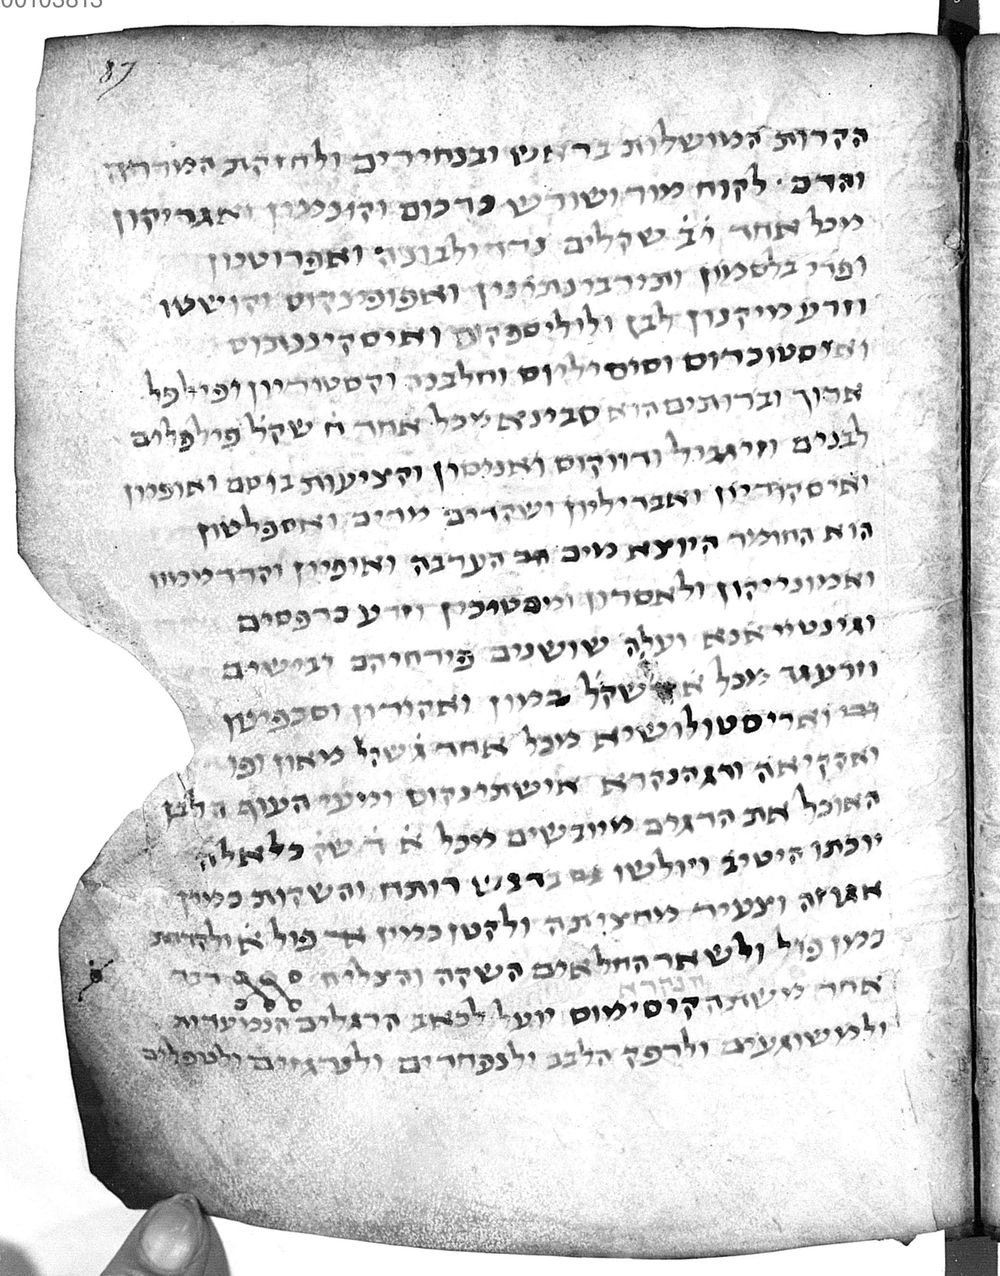 00103813
87
הקרות המושלות בראש ובנחירים ולחזקת המרחה
והדם · לקוח מור ושורש כרכום וקונמון ואגריקון
מכל אחד י̇ב̇ שקלים נרד ולבונה ואפרוטנון
ופרי בלסמון ותירבינתינין ואפופינקוס וקושטו
וזרע מיקנון לבן ולוליספקוס ואיסקיננטכוס
ואיסטוכדוס וסיסיליוס וחלבנה וקסטוריון ופילפל
ארוך וברותים הוא סבינא מכל אחד ח̇ שקל פילפלים
לבנים וזיגביל ודווקוס ואניסון וקציעות בוסם ואופיון
ואיסקורדיון ואבריליון ושקדים מרים ואספלטון
הוא החומר היוצא מים הערבה ואופיון וקרדממון
ואמוניקון ולאסרון ומיפטיכין וזרע כרפסים
וגינטייאנא ועלה שושנים פירחיהם יבישים
וזרע גד מכל שקל במון ואקורון וסכפינון
ואריסטולושיא מכל אחד ג̇ שקל מאון ופו
ואקקיאה והגהנקרא אישתינקוס ומיעי העוף הלבן
האוכל את הדגים מיובשים מכל א̇ ד̇ שק̇ כל אלה
יוכתו היטיב ויולשו בדבש רותח והשקות כמין
אגוזה וצעיר מחציתה ולקטן כמין פול א̇ ולקדחת
כמון פול ולשאר החלאים השקה והצליח דבר
הנקרא
אחר משתה קוסימוס יועל לכאב הרגלים הנמעדות
ולמשוגעים ולדפק הלבב ולנפחדים ולנרגזים ולטפלים